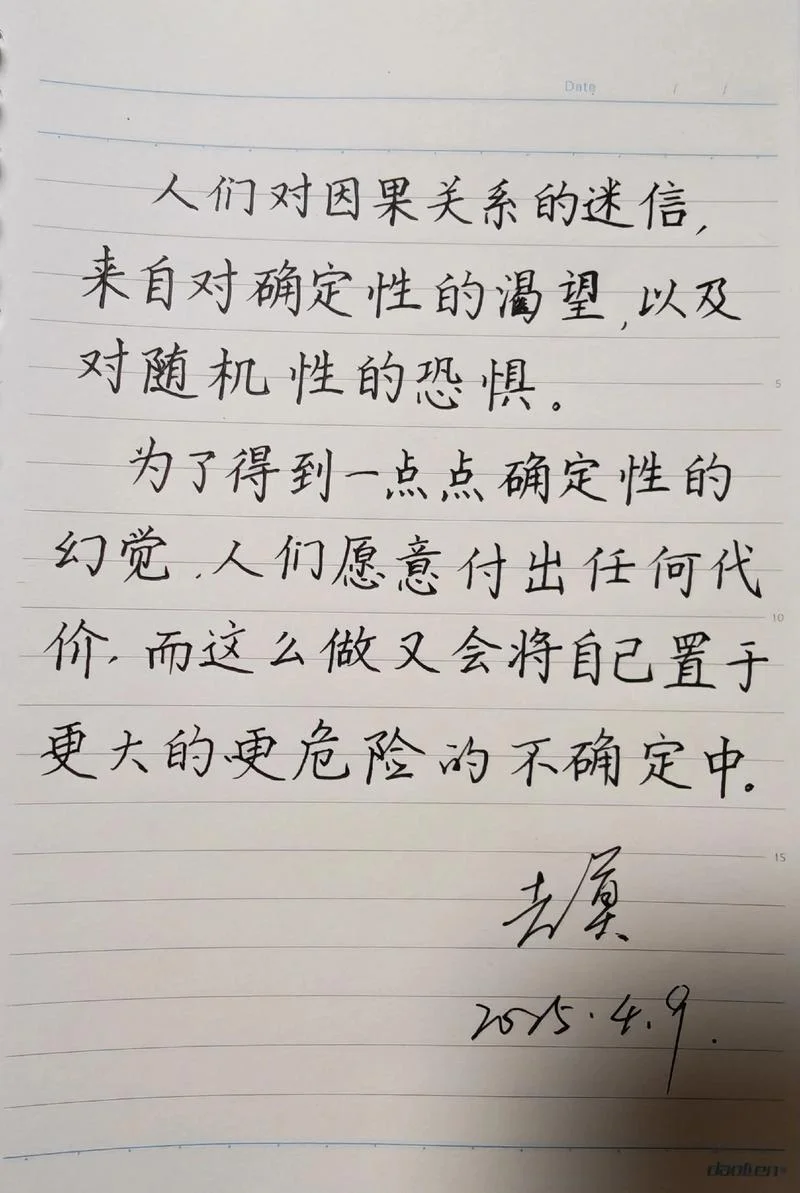 Date / /
人们对因果关系的迷信,
来自对确定性的渴望,以及
对随机性的恐惧。
5
为了得到一点点确定性的
幻觉,人们愿意付出任何代
价,而这么做又会将自己置于
10
更大的更危险的不确定中。
15
2025.4.9.